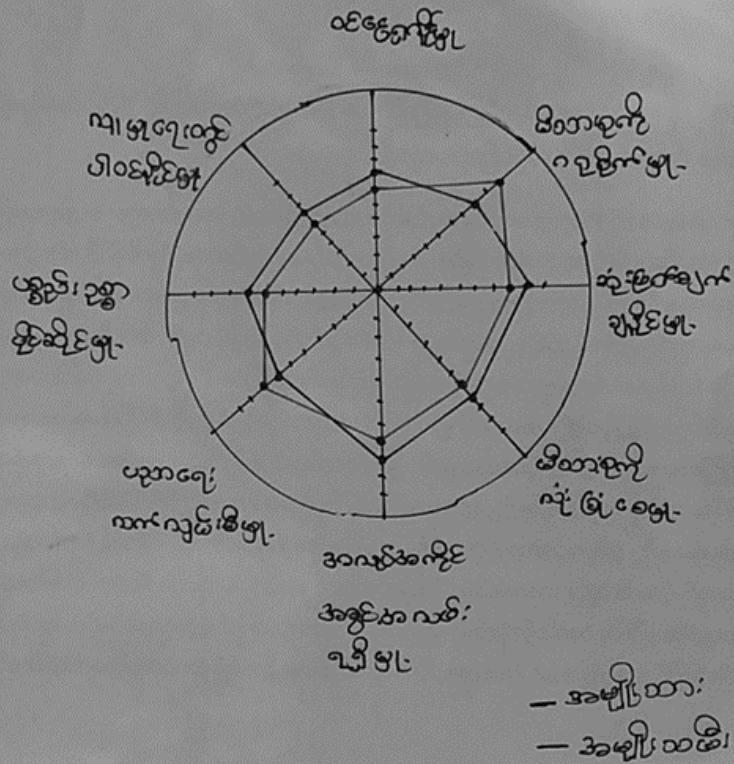 ဝင်ငွေရရှိမှု
မိသားစုကို
ဂရုစိုက်မှု.
ဆုံးဖြတ်ချက်
ချနိုင်မှု.
မိသားစုကို
လုံခြုံစေမှု.
အလုပ်အကိုင်
အခွင့်အလမ်း
ရရှိမှု.
ပညာရေး
လက်လှမ်းမီမှု.
ပစ္စည်းဥစ္စာ
ပိုင်ဆိုင်မှု.
လူမှုရေးတွင်
ပါဝင်နိုင်မှု
— အမျိုးသား
— အမျိုးသမီး